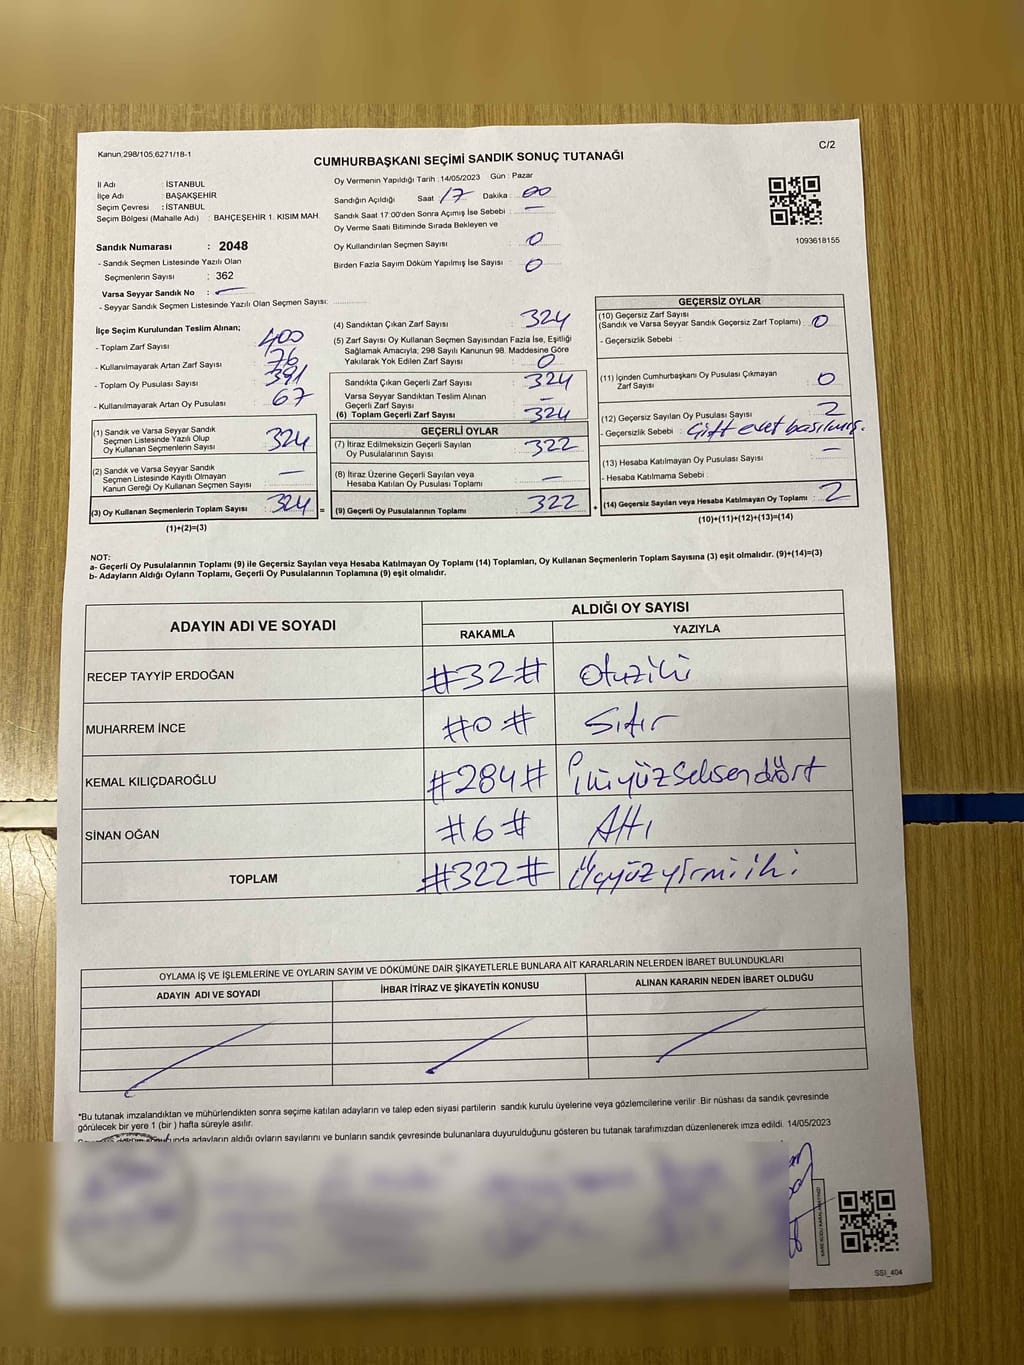 Kanun;298/105,6271/18-1
C/2
CUMHURBAŞKANI SEÇİMİ SANDIK SONUÇ TUTANAĞI
İl Adı : İSTANBUL
İlçe Adı : BAŞAKŞEHİR
Seçim Çevresi : İSTANBUL
Seçim Bölgesi (Mahalle Adı) : BAHÇEŞEHİR 1. KISIM MAH.
Sandık Numarası : 2048
- Sandık Seçmen Listesinde Yazılı Olan
Seçmenlerin Sayısı : 362
Varsa Seyyar Sandık No : —
- Seyyar Sandık Seçmen Listesinde Yazılı Olan Seçmen Sayısı:
Oy Vermenin Yapıldığı Tarih : 14/05/2023 Gün : Pazar
Sandığın Açıldığı Saat : 17 Dakika : 00
Sandık Saat 17:00'den Sonra Açımış İse Sebebi : —
Oy Verme Saati Bitiminde Sırada Bekleyen ve
Oy Kullandırılan Seçmen Sayısı : 0
Birden Fazla Sayım Döküm Yapılmış İse Sayısı : 0
1093618155
İlçe Seçim Kurulundan Teslim Alınan;
- Toplam Zarf Sayısı : 400
- Kullanılmayarak Artan Zarf Sayısı : 76
- Toplam Oy Pusulası Sayısı : 391
- Kullanılmayarak Artan Oy Pusulası : 67
(1) Sandık ve Varsa Seyyar Sandık
Seçmen Listesinde Yazılı Olup
Oy Kullanan Seçmenlerin Sayısı : 324
(2) Sandık ve Varsa Seyyar Sandık
Seçmen Listesinde Kayıtlı Olmayan
Kanun Gereği Oy Kullanan Seçmen Sayısı : —
(3) Oy Kullanan Seçmenlerin Toplam Sayısı : 324 =
(1)+(2)=(3)
(4) Sandıktan Çıkan Zarf Sayısı : 324
(5) Zarf Sayısı Oy Kullanan Seçmen Sayısından Fazla İse, Eşitliği
Sağlamak Amacıyla; 298 Sayılı Kanunun 98. Maddesine Göre
Yakılarak Yok Edilen Zarf Sayısı : 0
Sandıkta Çıkan Geçerli Zarf Sayısı : 324
Varsa Seyyar Sandıktan Teslim Alınan
Geçerli Zarf Sayısı : —
(6) Toplam Geçerli Zarf Sayısı : 324
GEÇERLİ OYLAR
(7) İtiraz Edilmeksizin Geçerli Sayılan
Oy Pusulalarının Sayısı : 322
(8) İtiraz Üzerine Geçerli Sayılan veya
Hesaba Katılan Oy Pusulası Toplamı : —
(9) Geçerli Oy Pusulalarının Toplamı : 322 +
GEÇERSİZ OYLAR
(10) Geçersiz Zarf Sayısı
(Sandık ve Varsa Seyyar Sandık Geçersiz Zarf Toplamı) : 0
- Geçersizlik Sebebi :
(11) İçinden Cumhurbaşkanı Oy Pusulası Çıkmayan
Zarf Sayısı : 0
(12) Geçersiz Sayılan Oy Pusulası Sayısı : 2
- Geçersizlik Sebebi : Çift evet basılmış.
(13) Hesaba Katılmayan Oy Pusulası Sayısı : —
- Hesaba Katılmama Sebebi :
(14) Geçersiz Sayılan veya Hesaba Katılmayan Oy Toplamı : 2
(10)+(11)+(12)+(13)=(14)
NOT:
a- Geçerli Oy Pusulalarının Toplamı (9) ile Geçersiz Sayılan veya Hesaba Katılmayan Oy Toplamı (14) Toplamları, Oy Kullanan Seçmenlerin Toplam Sayısına (3) eşit olmalıdır. (9)+(14)=(3)
b- Adayların Aldığı Oyların Toplamı, Geçerli Oy Pusulalarının Toplamına (9) eşit olmalıdır.
ADAYIN ADI VE SOYADI
ALDIĞI OY SAYISI
RAKAMLA YAZIYLA
RECEP TAYYİP ERDOĞAN #32# Otuziki
MUHARREM İNCE #0# Sıfır
KEMAL KILIÇDAROĞLU #284# İkiyüzseksendört
SİNAN OĞAN #6# Altı
TOPLAM #322# Üçyüzyirmiiki
OYLAMA İŞ VE İŞLEMLERİNE VE OYLARIN SAYIM VE DÖKÜMÜNE DAİR ŞİKAYETLERLE BUNLARA AİT KARARLARIN NELERDEN İBARET BULUNDUKLARI
ADAYIN ADI VE SOYADI İHBAR İTİRAZ VE ŞİKAYETİN KONUSU ALINAN KARARIN NEDEN İBARET OLDUĞU
*Bu tutanak imzalandıktan ve mühürlendikten sonra seçime katılan adayların ve talep eden siyasi partilerin sandık kurulu üyelerine veya gözlemcilerine verilir. Bir nüshası da sandık çevresinde
görülecek bir yere 1 (bir) hafta süreyle asılır.
adayların aldığı oyların sayılarını ve bunların sandık çevresinde bulunanlara duyurulduğunu gösteren bu tutanak tarafımızdan düzenlenerek imza edildi. 14/05/2023
SSI_404